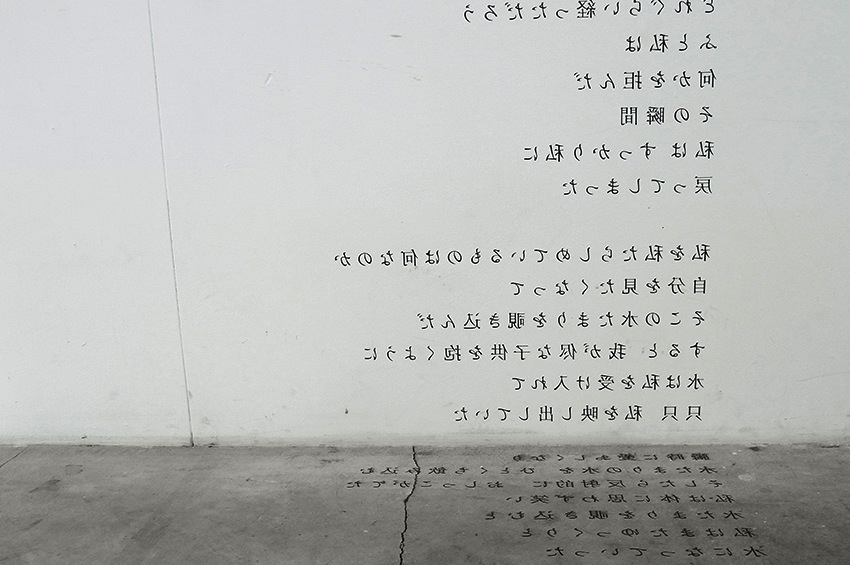 どれぐらい経っただろう
ふと私は
何かを拒んだ
その瞬間
私は すっかり私に
戻ってしまった
私を私たらしめているものは何なのか
自分を見たくなって
そこの水たまりを覗き込んだ
すると 我が侭な子供を抱くように
水は私を受け入れて
只 只 私を映し出していた
瞬時に愛おしくなり
水たまりの水を ひとくち飲み込む
そしたら反射的に おしっこがでた
私は体に思わず笑い
水たまりを覗き込むと
私はまたゆっくりと
水になっていった